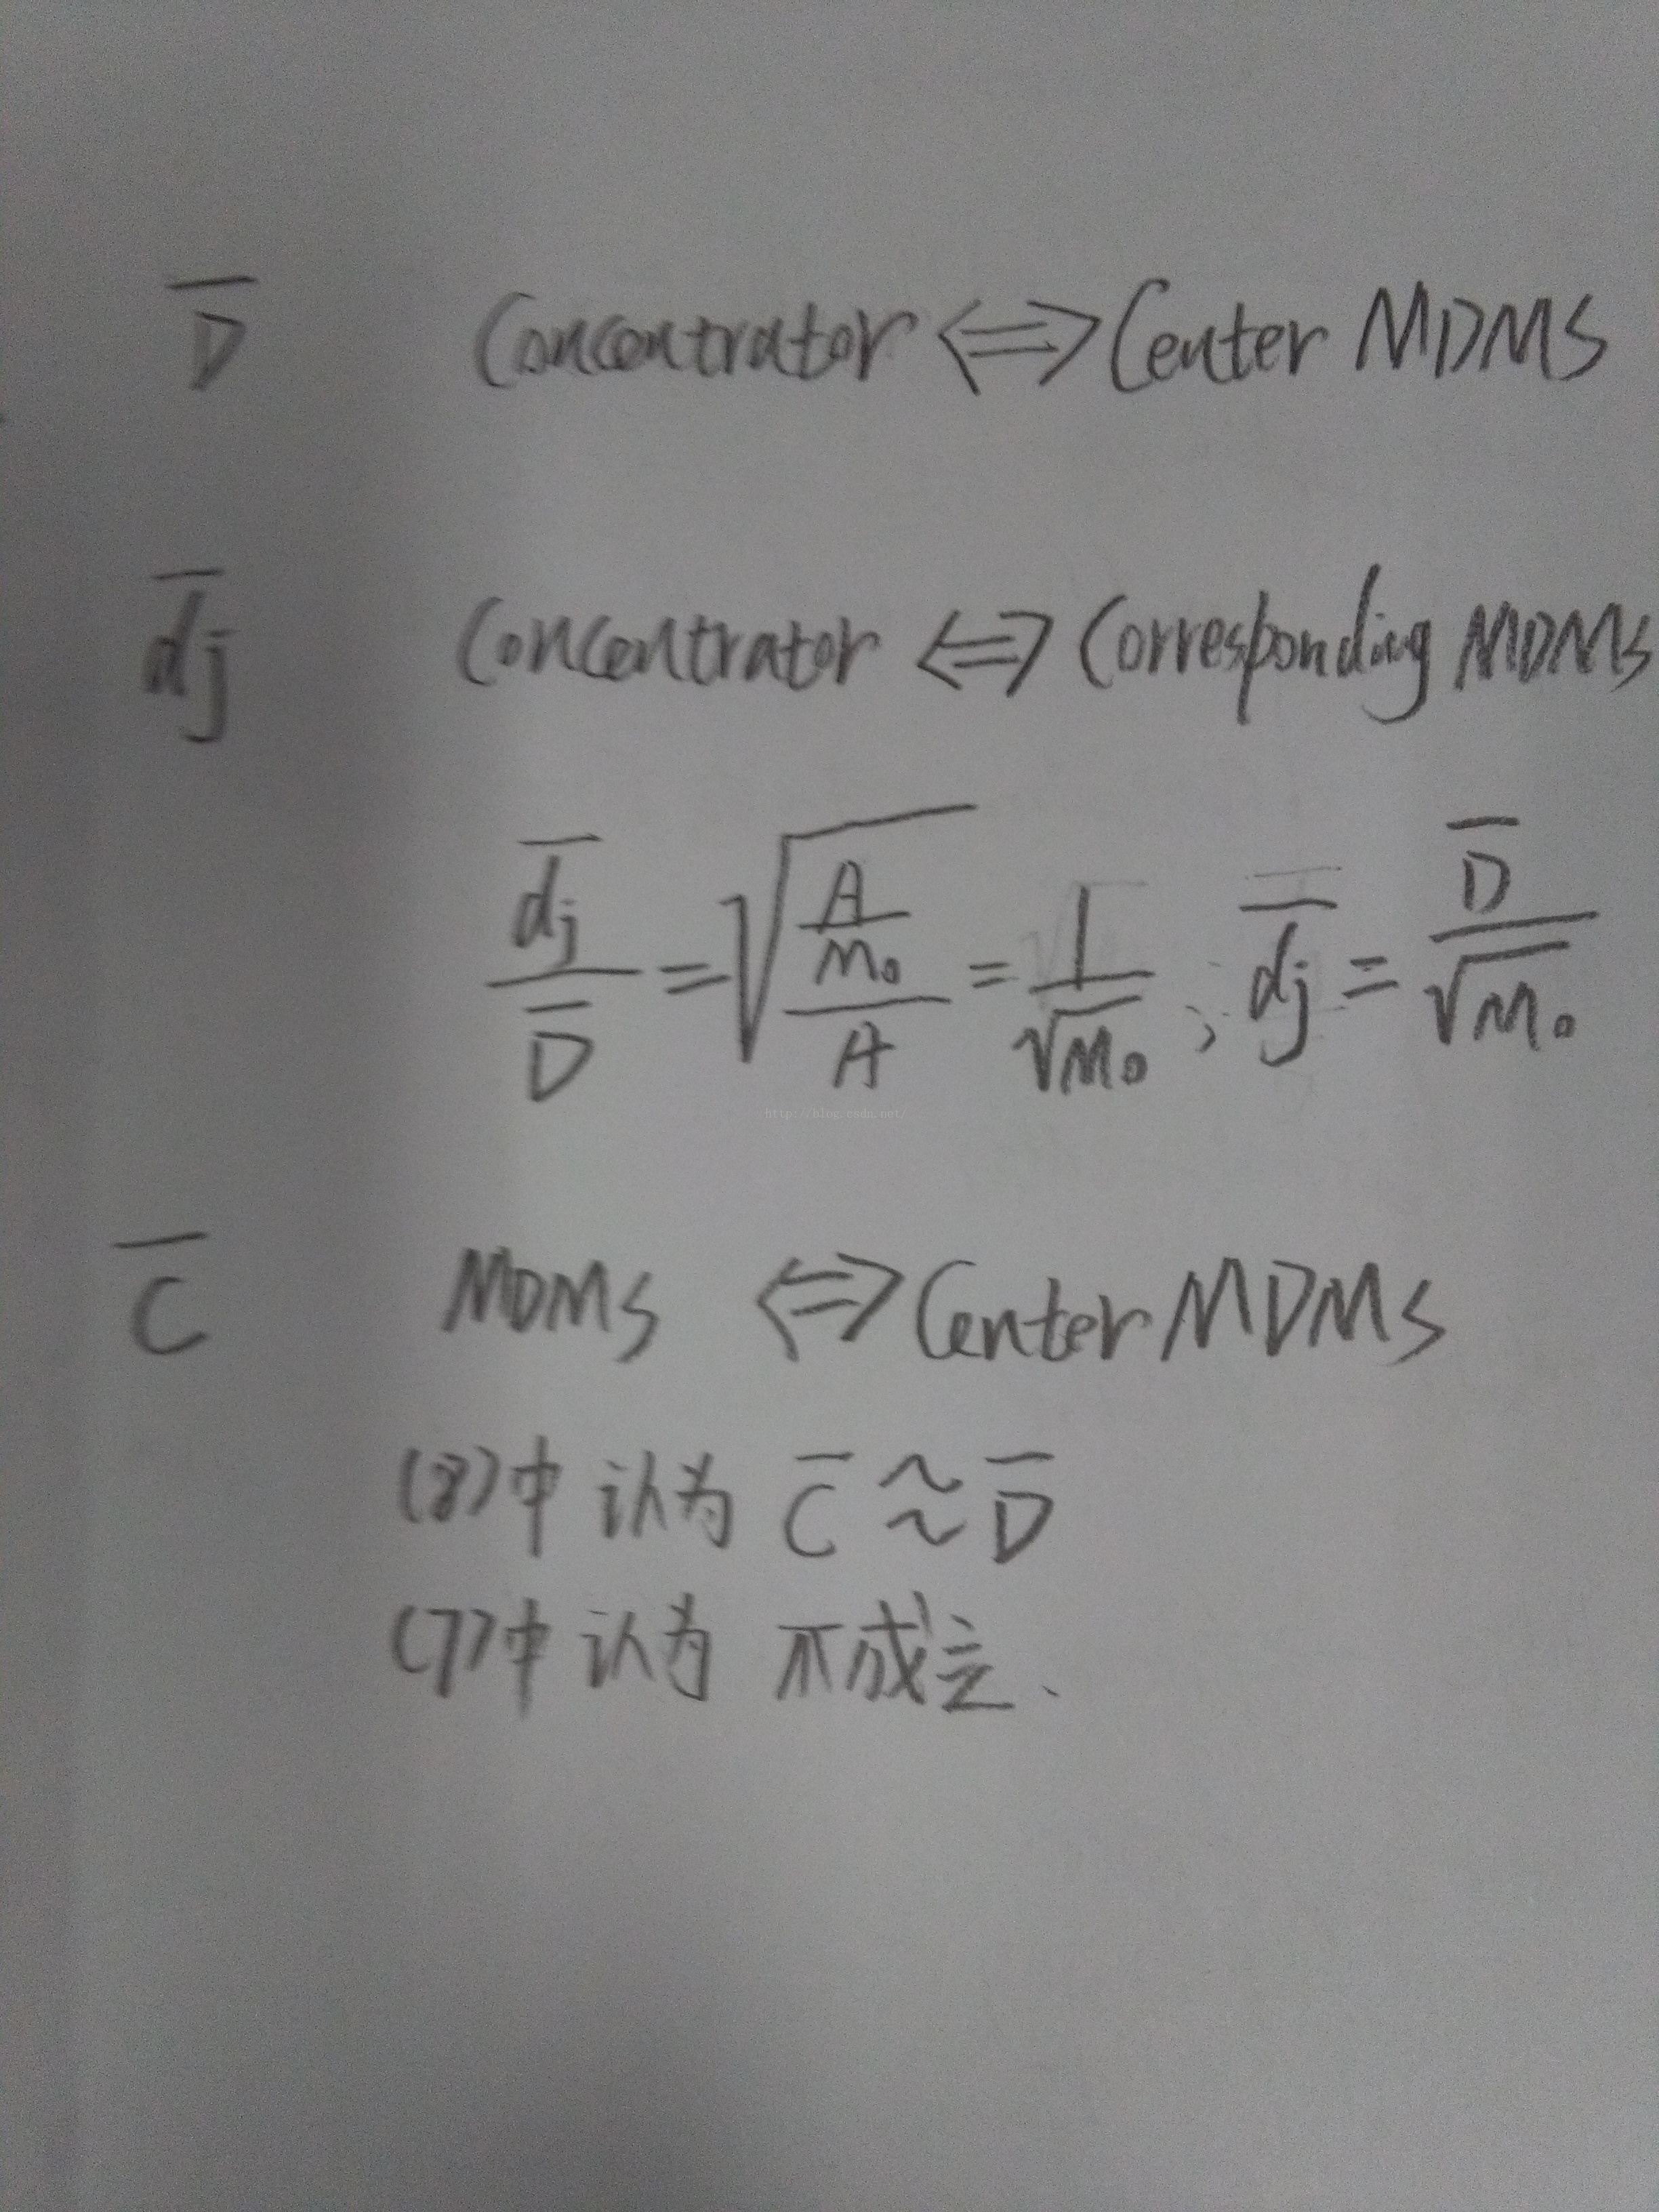 D̅ Concentrator ⇔ Center MDMS
d̅j Concentrator ⇔ Corresponding MDMS
d̅j / D̅ = √((A/m₀)/A) = 1/√m₀ ; d̅j = D̅/√m₀
http://blog.csdn.net/
C̅ MDMS ⇔ Center MDMS
(8)中 认为 C̅ ≈ D̅
(7)中 认为 不成立.